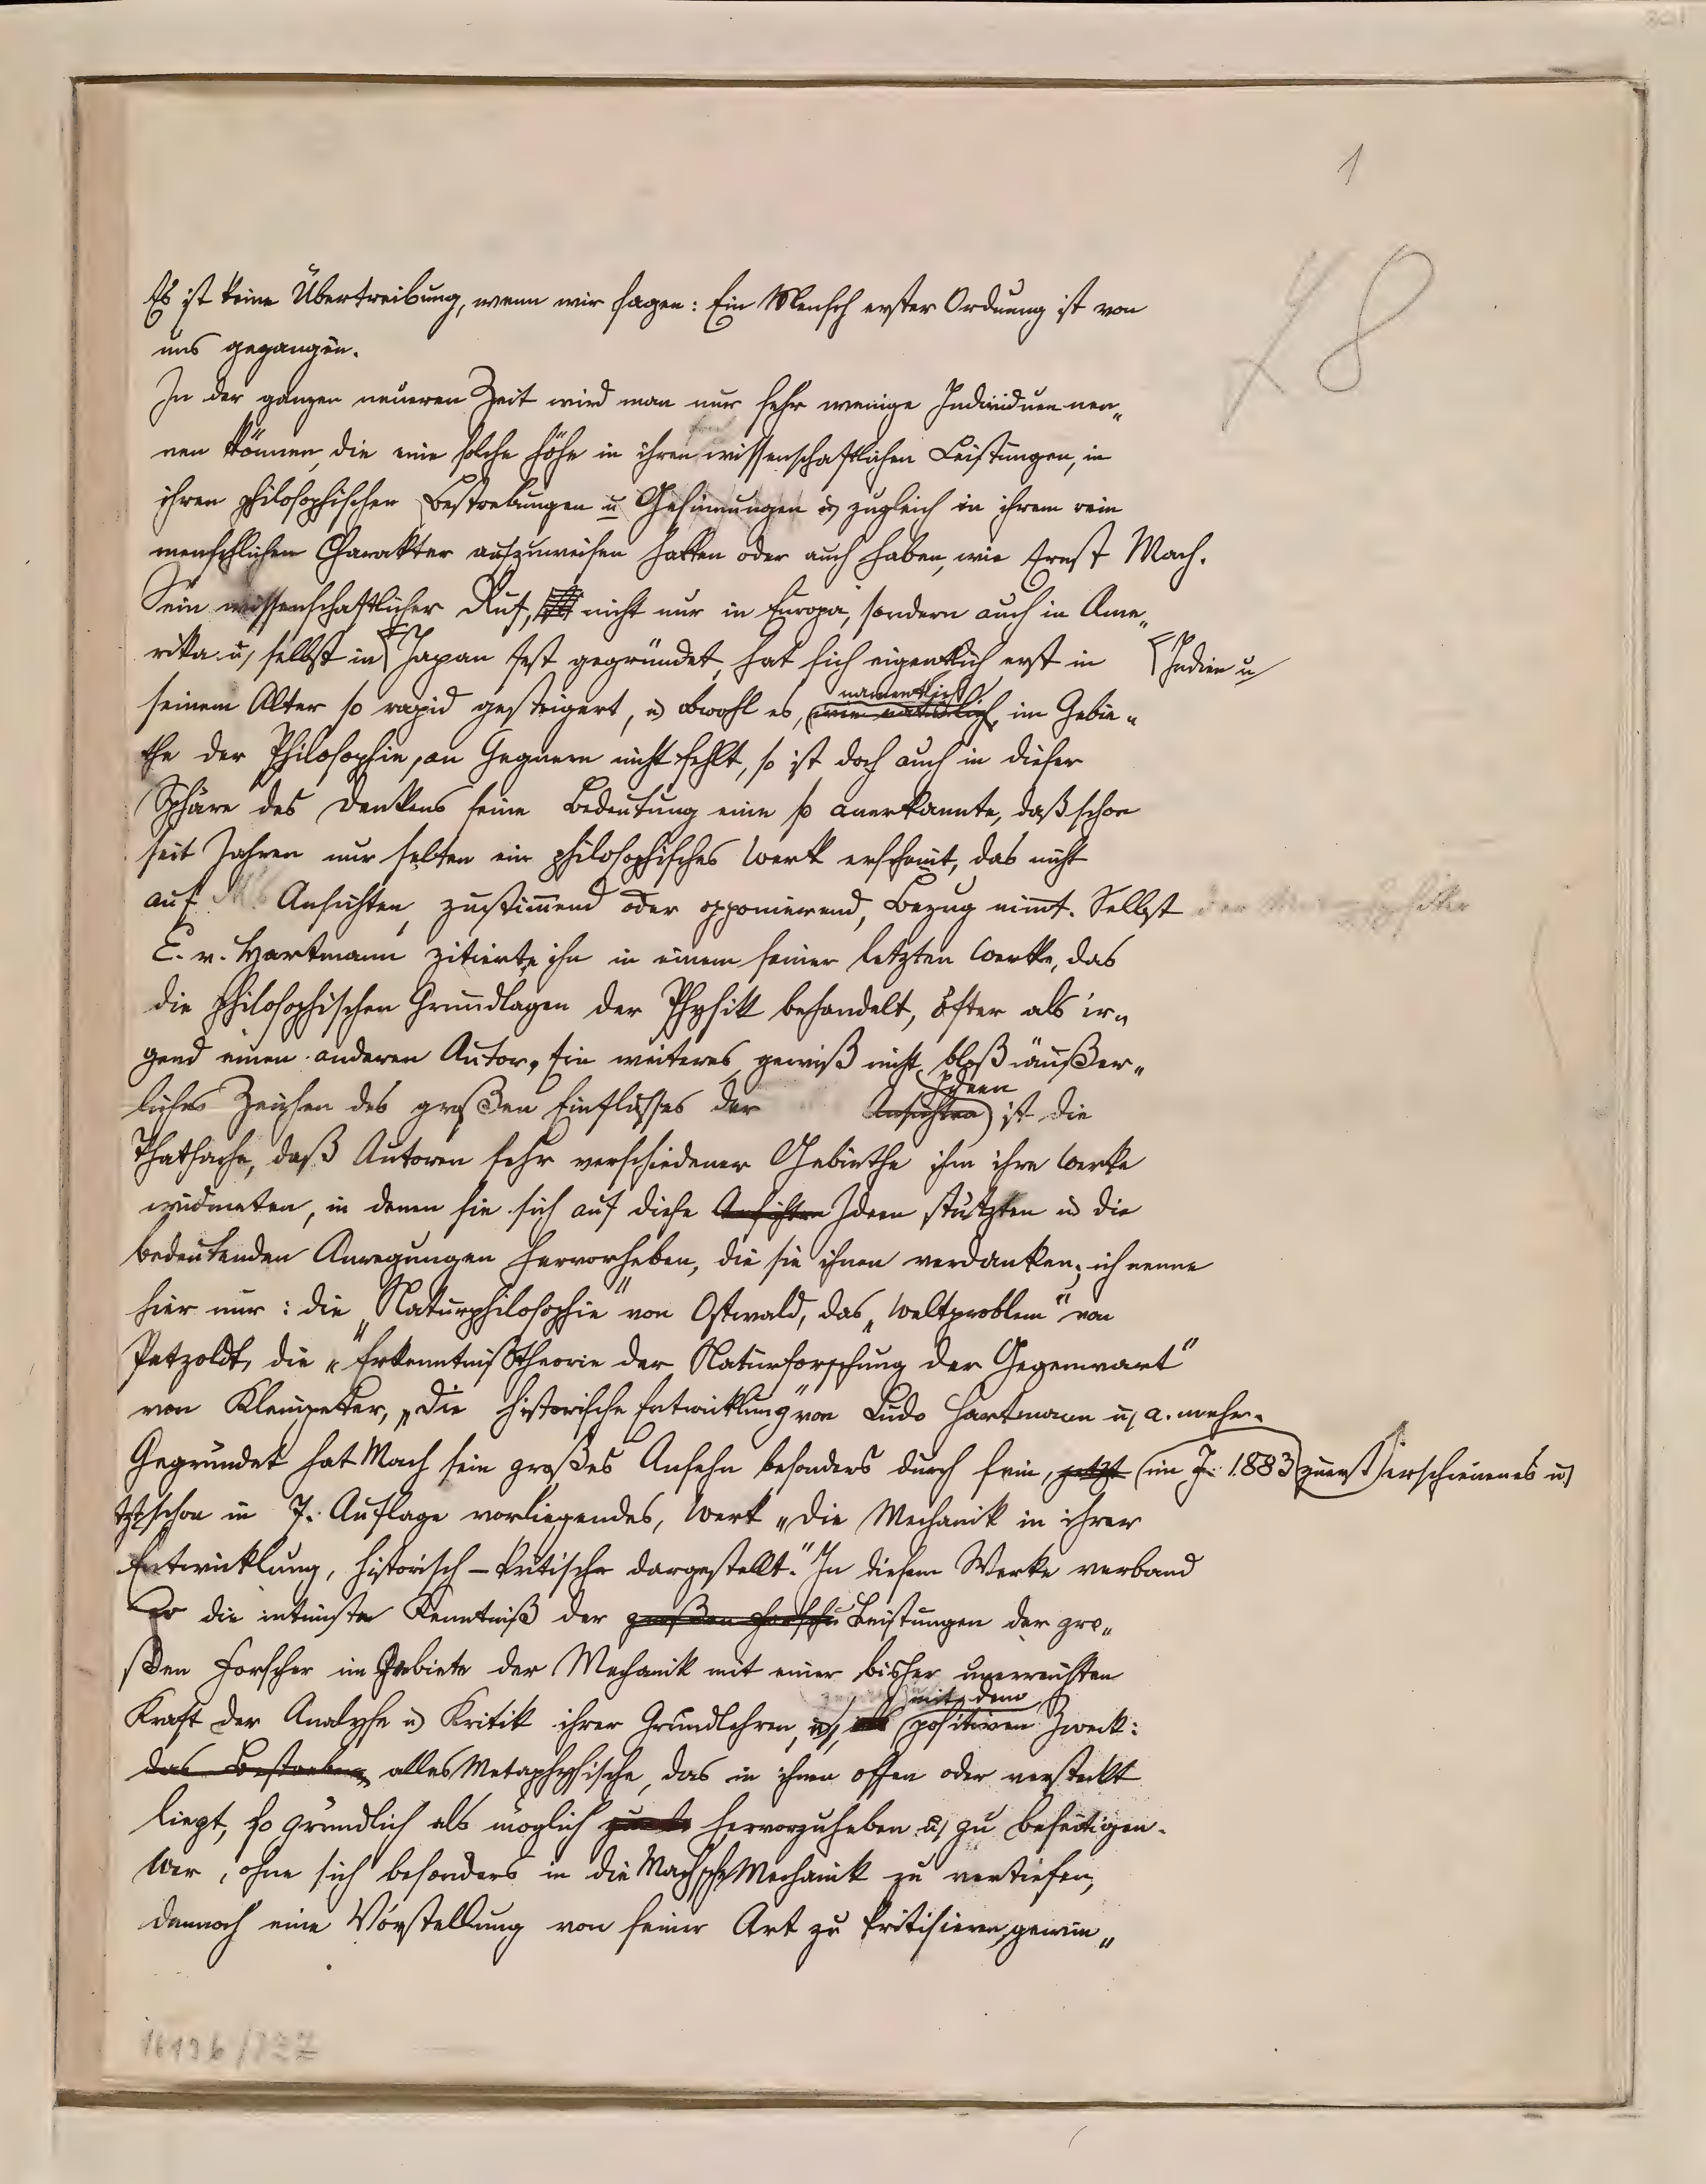 1
78
Es ist keine Übertreibung, wenn wir sagen: Ein Mensch erster Ordnung ist von
uns gegangen.
In der ganzen neueren Zeit wird man nur sehr wenige Individuen nen„
nen können, die eine solche Höhe in ihren wissenschaftlichen Leistungen, in
ihren philosophischen Bestrebungen u Gesinnungen u, zugleich in ihrem rein
menschlichen Charakter aufzuweisen hatten oder auch haben, wie Ernst Mach.
Sein wissenschaftlicher Ruf, nicht nur in Europa, sondern auch in Ame„
rika u, selbst in Japan fest gegründet, hat sich eigentlich erst in
Indien u
namentlich
seinem Alter so rapid gesteigert, u, obwohl es, wie natürlich, im Gebie„
the der Philosophie, an Gegnern nicht fehlt, so ist doch auch in dieser
Sphäre des Denkens seine Bedeutung eine so anerkannte, daß schon
seit Jahren nur selten ein philosophisches Werk erscheint, das nicht
auf Ms Ansichten, zustimmend oder opponierend, Bezug nimt. Selbst
E. v. Hartmann zitierte ihn in einem seiner letzten Werke, das
die philosophischen Grundlagen der Physik behandelt, öfter als ir„
gend einen anderen Autor. Ein weiteres, gewiß nicht bloß äußer„
Ideen
liches Zeichen des großen Einflusses der Ansichten ist die
Thatsache, daß Autoren sehr verschiedener Gebiethe ihm ihre Werke
widmeten, in denen sie sich auf diese Ansichten Ideen stützten u, die
bedeutenden Anregungen hervorheben, die sie ihnen verdanken; ich nenne
hier nur: die „Naturphilosophie“ von Ostwald, das „Weltproblem“ von
Petzoldt, die „Erkenntnißtheorie der Naturforschung der Gegenwart“
von Kleinpeter, „Die historische Entwicklung“ von Ludo Hartmann u, a. mehr.
Gegründet hat Mach sein großes Ansehn besonders durch sein, jetzt im J. 1883 zuerst erschienenes u,
jetzt schon in 7. Auflage vorliegendes, Werk „Die Mechanik in ihrer
Entwicklung, historisch-kritisch dargestellt.“ In diesem Werke verband
er die intimste Kenntniß der großen Forscher Leistungen der gro„
ßen Forscher im Gebiete der Mechanik mit einer bisher unerreichten
mit dem
Kraft der Analyse u, Kritik ihrer Grundlehren, u, positiven Zweck:
das Bestreben, alles Metaphysische, das in ihnen offen oder versteckt
liegt, so gründlich als möglich hervorzuheben u, zu beseitigen.
Wer, ohne sich besonders in die Machsche Mechanik zu vertiefen,
dennoch eine Vorstellung von seiner Art zu kritisieren, gewin„